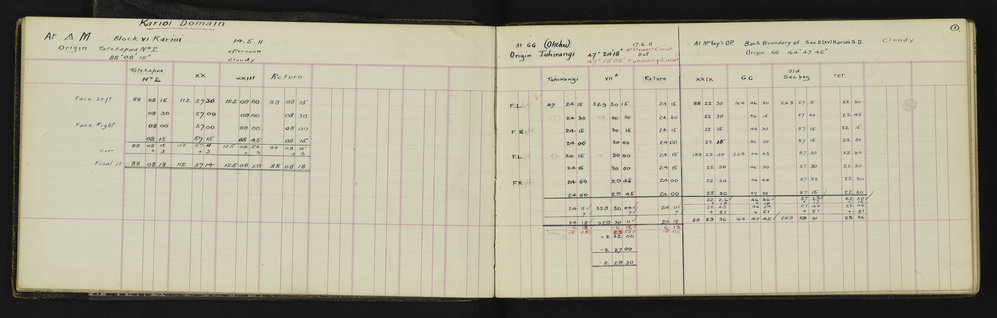 Karioi Domain
At Δ M Block VI Karioi 14.5.11
Origin Totokapua Nº2 afternoon
88° 08' 18" Cloudy
Totokapua Nº2 XX XXIII Return
Face Left 88 08 15 112 57 30 125 09 00 88 08 15
08 30 57 00 09 00 08 30
Face Right 08 00 57 00 09 00 08 00
08 15 57 15 08 45 08 15
88 08 15 112 57 11 125 08 56 88 08 15
Corr + 3 + 3 + 3 + 3
Final 88 08 18 112 57 14 125 08 59 88 08 18
1
At GG (Okehu) 17.5.11
Origin Tuhirangi 47° 24' 18"
47° 18' 05" Tuhirangi
Tuhirangi VII Return
F.L. 47 24 15 329 30 15 24 15
24 30 30 30 24 30
F.R. 24 15 30 15 24 15
24 00 30 00 24 00
F.L. 24 15 30 00 24 15
24 15 30 00 24 15
F.R. 24 00 29 45 24 00
24 00 29 45 24 00
24 11 329 30 04 24 11
7 7 7
24 18 329 30 11 24 18
6 13 6 13 6 13
18 05 18 05
-2 32 00
-2 27 00
-2 29 30
At McKay's O.P. Back Boundary of Sec 2 (XV) Karioi S.D. Cloudy
Origin GG 164° 47' 45"
XXIX GG Old Sec peg Ret.
88 22 30 164 46 30 269 57 15 22 30
22 30 46 15 57 00 22 45
22 15 46 30 57 15 22 15
22 15 46 30 57 15 22 30
22 30 57 30 22 30
22 30 57 30 22 30
22 30 57 30 22 30
22 30 57 15 22 30
+ 51 + 51 + 51 + 51
88 23 36 164 47 45 269 58 31 23 36